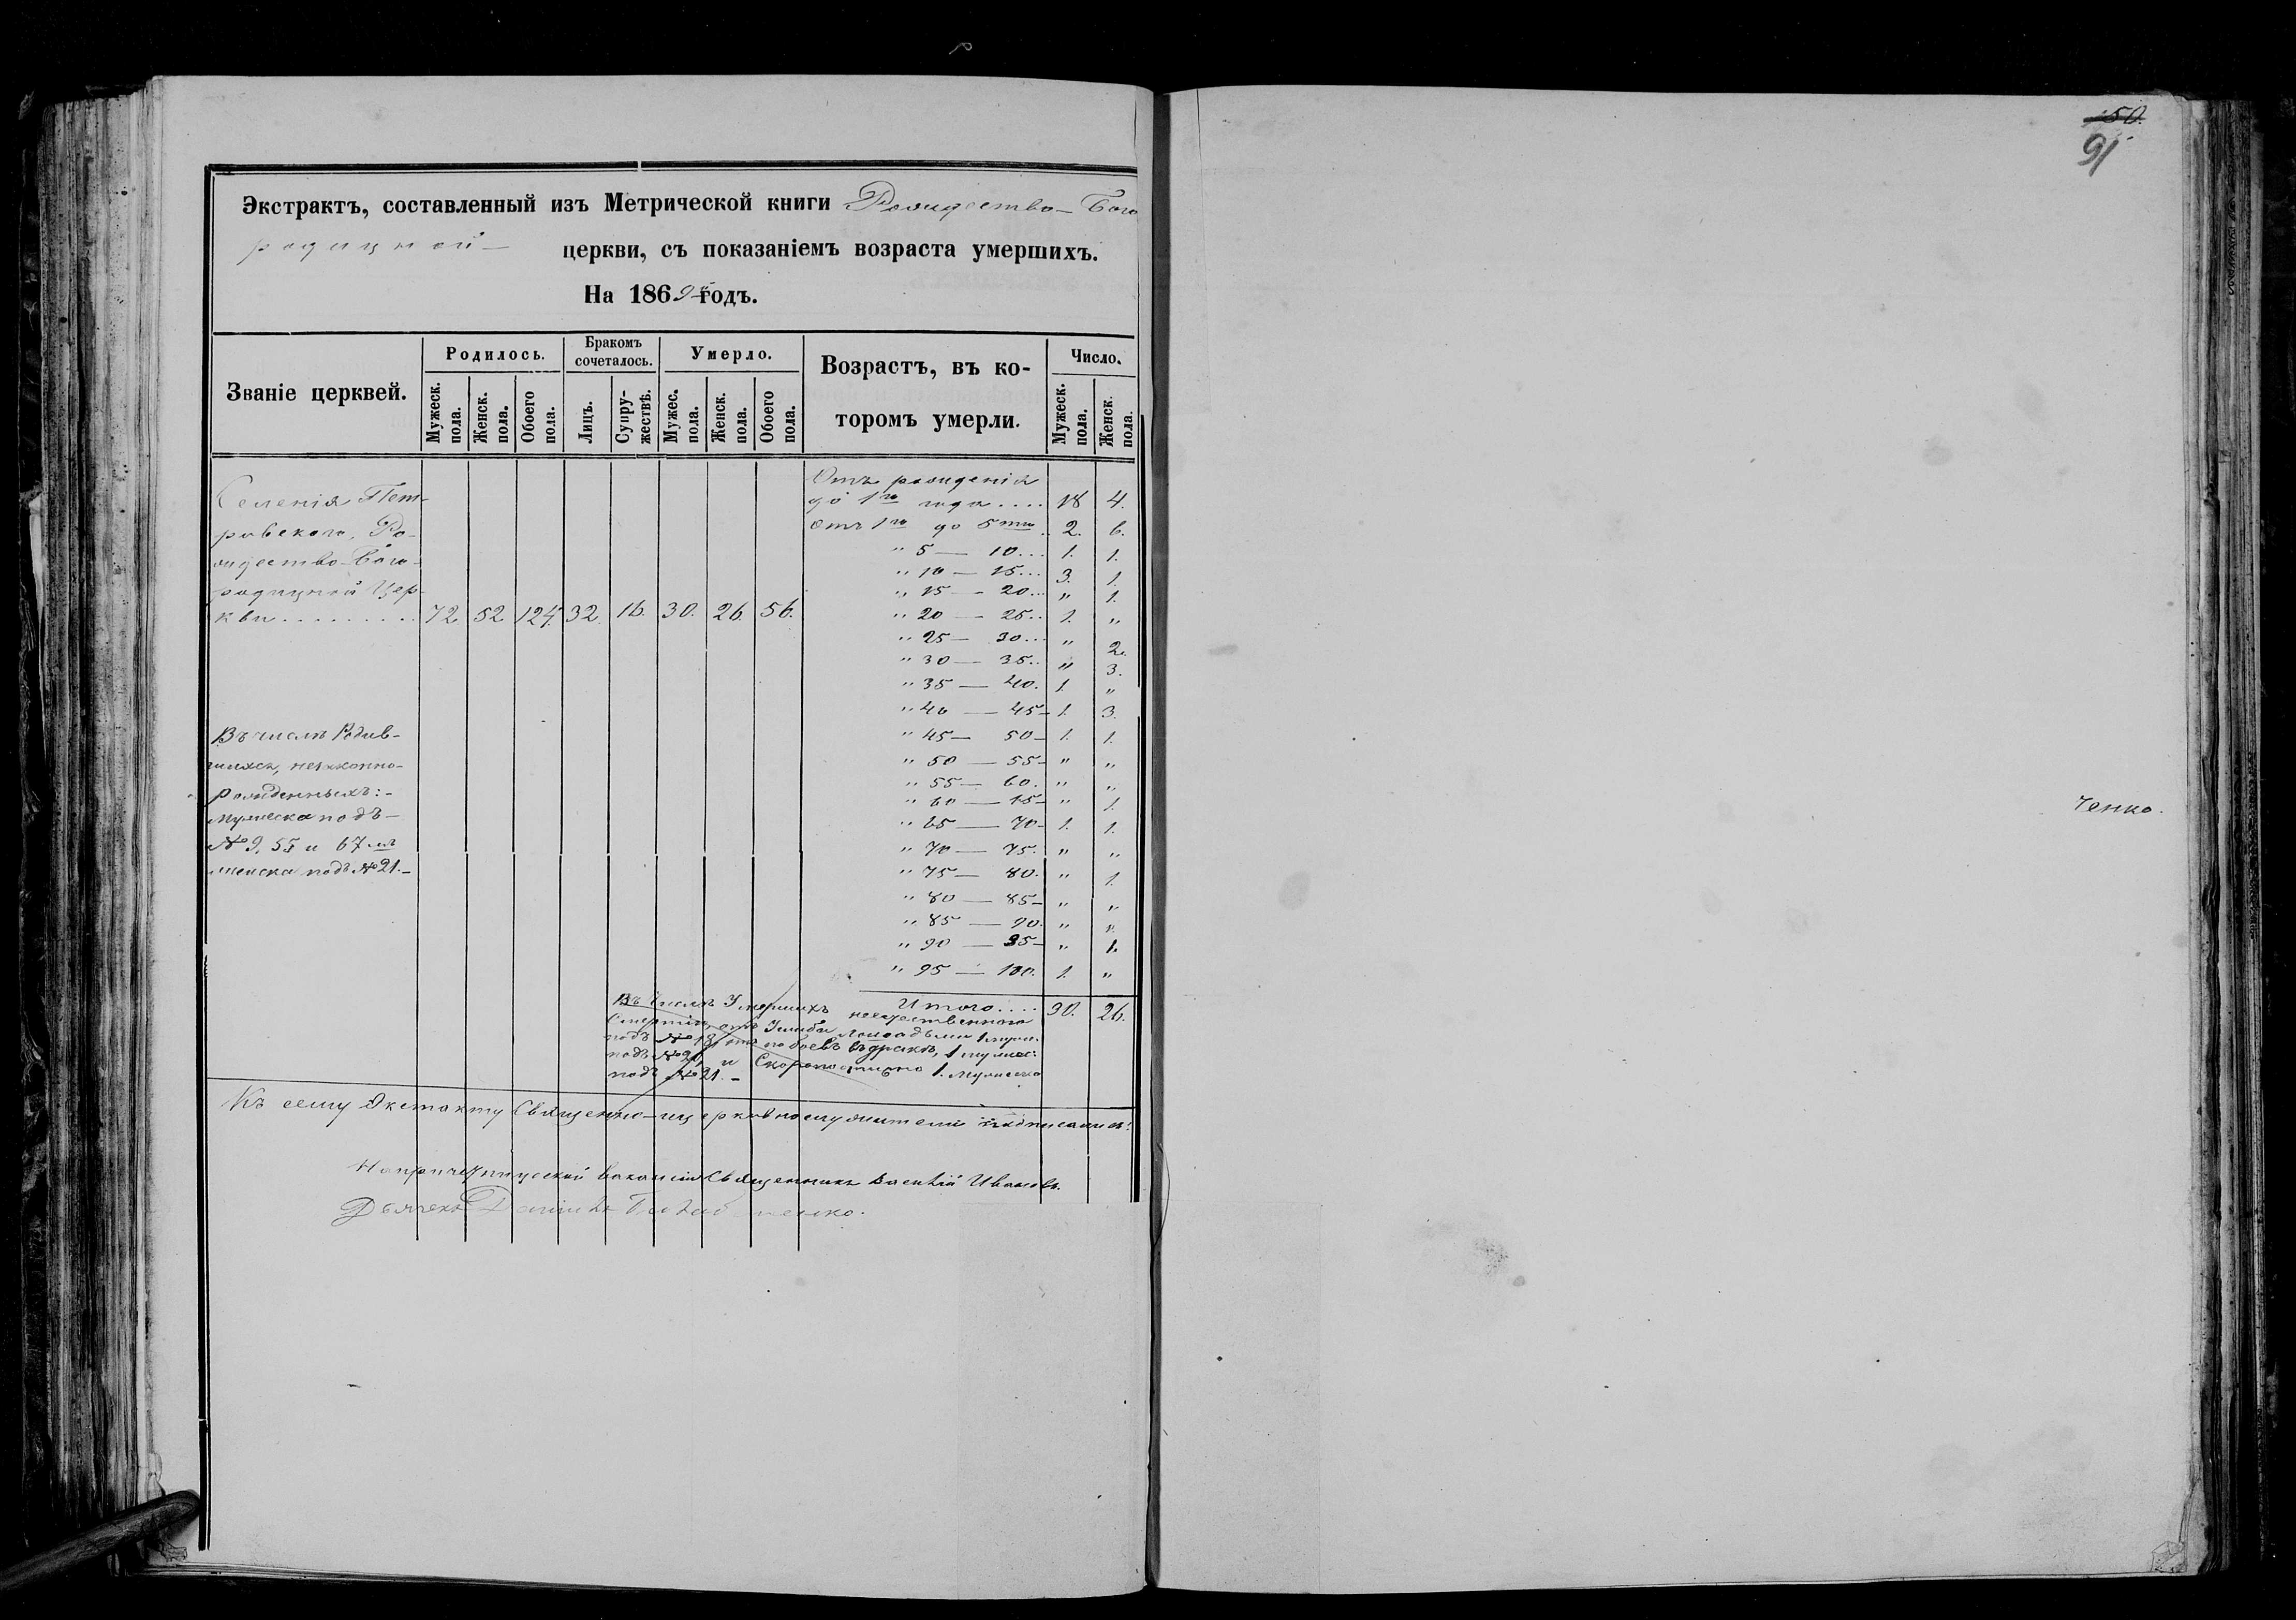 Экстрактъ, составленный изъ Метрической книги Рождество-Бого
родицкой церкви, съ показаніемъ возраста умершихъ.
На 1869 годъ.
Званіе церквей.
Родилось.
Мужеск. пола.
Женск. пола.
Обоего пола.
Бракомъ сочеталось.
Лицъ.
Супружествъ.
Умерло.
Мужес. пола.
Женск. пола.
Обоего пола.
Возрастъ, въ которомъ умерли.
Число.
Мужеск. пола.
Женск. пола.
Селенія Пет-
ровскаго, Ро-
ждество-Бого-
родицкой Цер-
кви ......... 72. 52. 124. 32. 16. 30. 26. 56.
Въ числѣ Родив-
шихся, незаконно-
рожденныхъ:-
Мужеска подъ-
№ 9, 55 и 67-мъ
женска подъ № 21.-
Отъ рожденія
до 1го года .... 18 4.
Отъ 1го до 5ти . 2. 6.
" 5 — 10... 1. 1.
" 10 — 15... 3. 1.
" 15 — 20... " 1.
" 20 — 25.. 1. "
" 25 — 30... " 2.
" 30 — 35.. " 3.
" 35 — 40. 1. "
" 40 — 45- 1. 3.
" 45 — 50- 1. 1.
" 50 — 55- " "
" 55 — 60. " "
" 60 — 65- " 1.
" 65 — 70- 1. 1.
" 70 — 75. " "
" 75 — 80. " 1.
" 80 — 85- " "
" 85 — 90. " "
" 90 — 95- " 1.
" 95 — 100. 1. "
Итого.... 30. 26.
Въ числѣ Умершихъ неестественною
Смертію, отъ Ушиба Лошадьми 1 муж.
подъ № 13, отъ побоевъ въ дракѣ, 1 мужес:
подъ № 20, и Скоропостижно 1. Мужеска
подъ № 21.-
Къ сему Экстакту Священно-церковнослужители подписались:
На причетнической вакансіи Священникъ Василій Ивановъ.
Дьячекъ Даніилъ
ченко.
50.
91